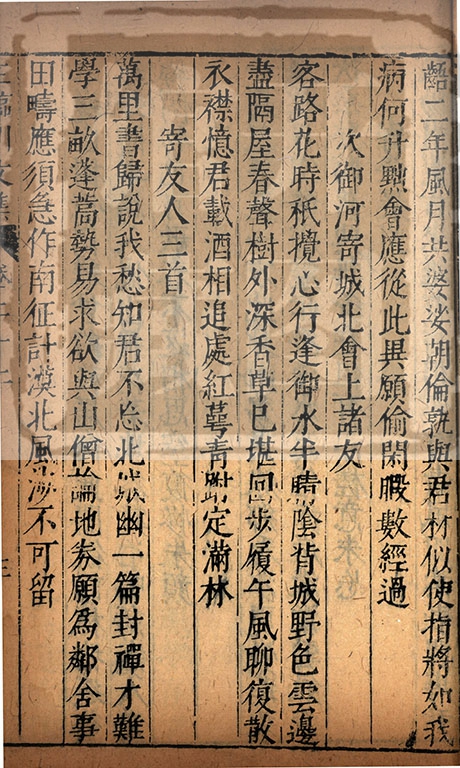 齬二年風月共婆娑朝倫孰與君材似使指將如我
病何升黜會應從此異願偷閑暇數經過
次御河寄城北會上諸友
客路花時秖攪心行逢御水半晴陰背城野色雲邊
盡隔屋春聲樹外深香草已堪回步履午風聊復散
衣襟憶君載酒相追處紅萼青跗定滿林
寄友人三首
萬里書歸說我愁知君不忘北城幽一篇封禪才難
學三畝蓬蒿勢易求欲與山僧論地券願爲鄰舍事
田疇應須急作南征計漠北風沙不可留